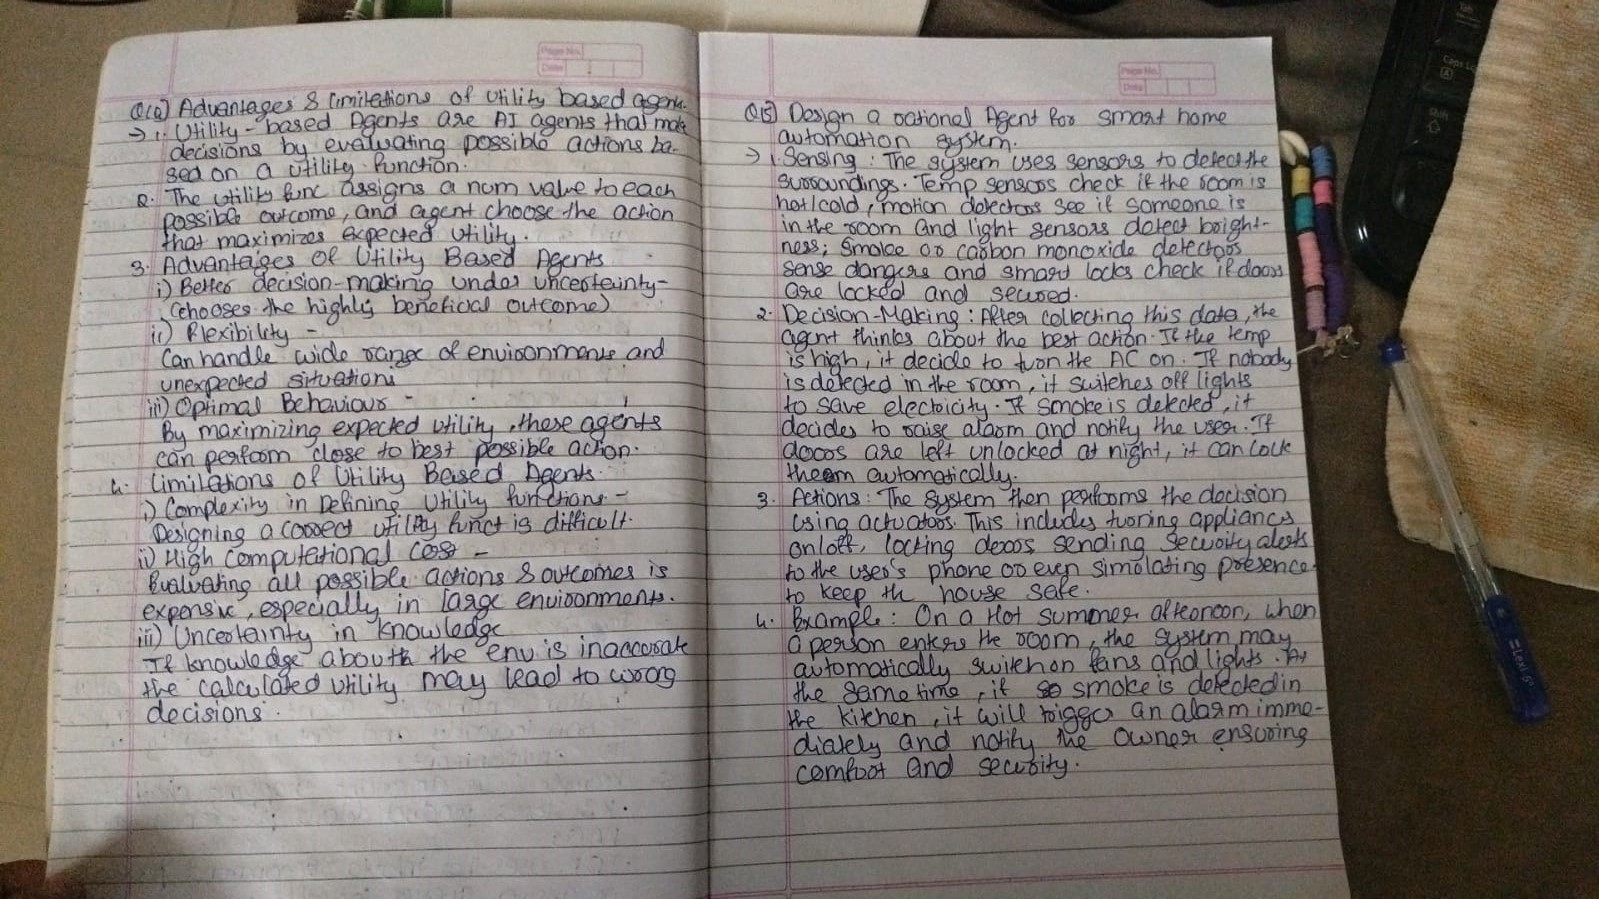 Page No.
Date
Q(a) Advantages & limitations of utility based agents.
→ 1. Utility-based Agents are AI agents that make
decisions by evaluating possible actions ba-
sed on a utility function.
2. The utility func assigns a num value to each
possible outcome, and agent choose the action
that maximizes expected utility.
3. Advantages Of Utility Based Agents
i) Better decision-making under uncertainty-
(chooses the highly beneficial outcome)
ii) Flexibility -
Can handle wide range of environments and
unexpected situations
iii) Optimal Behaviour -
By maximizing expected utility, these agents
can perform close to best possible action.
4. Limitations of Utility Based Agents.
i) Complexity in Defining Utility functions -
Designing a correct utility funct is difficult.
ii) High Computational Cost -
Evaluating all possible actions & outcomes is
expensive, especially in large environments.
iii) Uncertainty in knowledge
If knowledge about the env is inaccurate
the calculated utility may lead to wrong
decisions.
Page No.
Date
Design a rational Agent for smart home
automation system.
→ 1. Sensing : The system uses sensors to detect the
surroundings. Temp sensors check if the room is
hot/cold, motion detectors see if someone is
in the room and light sensors detect bright-
ness; smoke or carbon monoxide detectors
sense dangers and smart locks check if doors
are locked and secured.
2. Decision-Making : After collecting this data, the
agent thinks about the best action. If the temp
is high, it decide to turn the AC on. If nobody
is detected in the room, it switches off lights
to save electricity. If smoke is detected, it
decides to raise alarm and notify the user. If
doors are left unlocked at night, it can lock
them automatically.
3. Actions : The system then performs the decision
using actuators. This includes turing appliances
on/off, locking doors sending security alerts
to the user's phone or even simulating presence
to keep th house safe.
4. Example : On a Hot summer afternoon, when
a person enters the room, the system may
automatically switch on fans and lights. At
the same time, if smoke is detected in
the kitchen, it will trigger an alarm imme-
diately and notify the owner ensuring
comfort and security.
Caps
Shift
Lexi 5